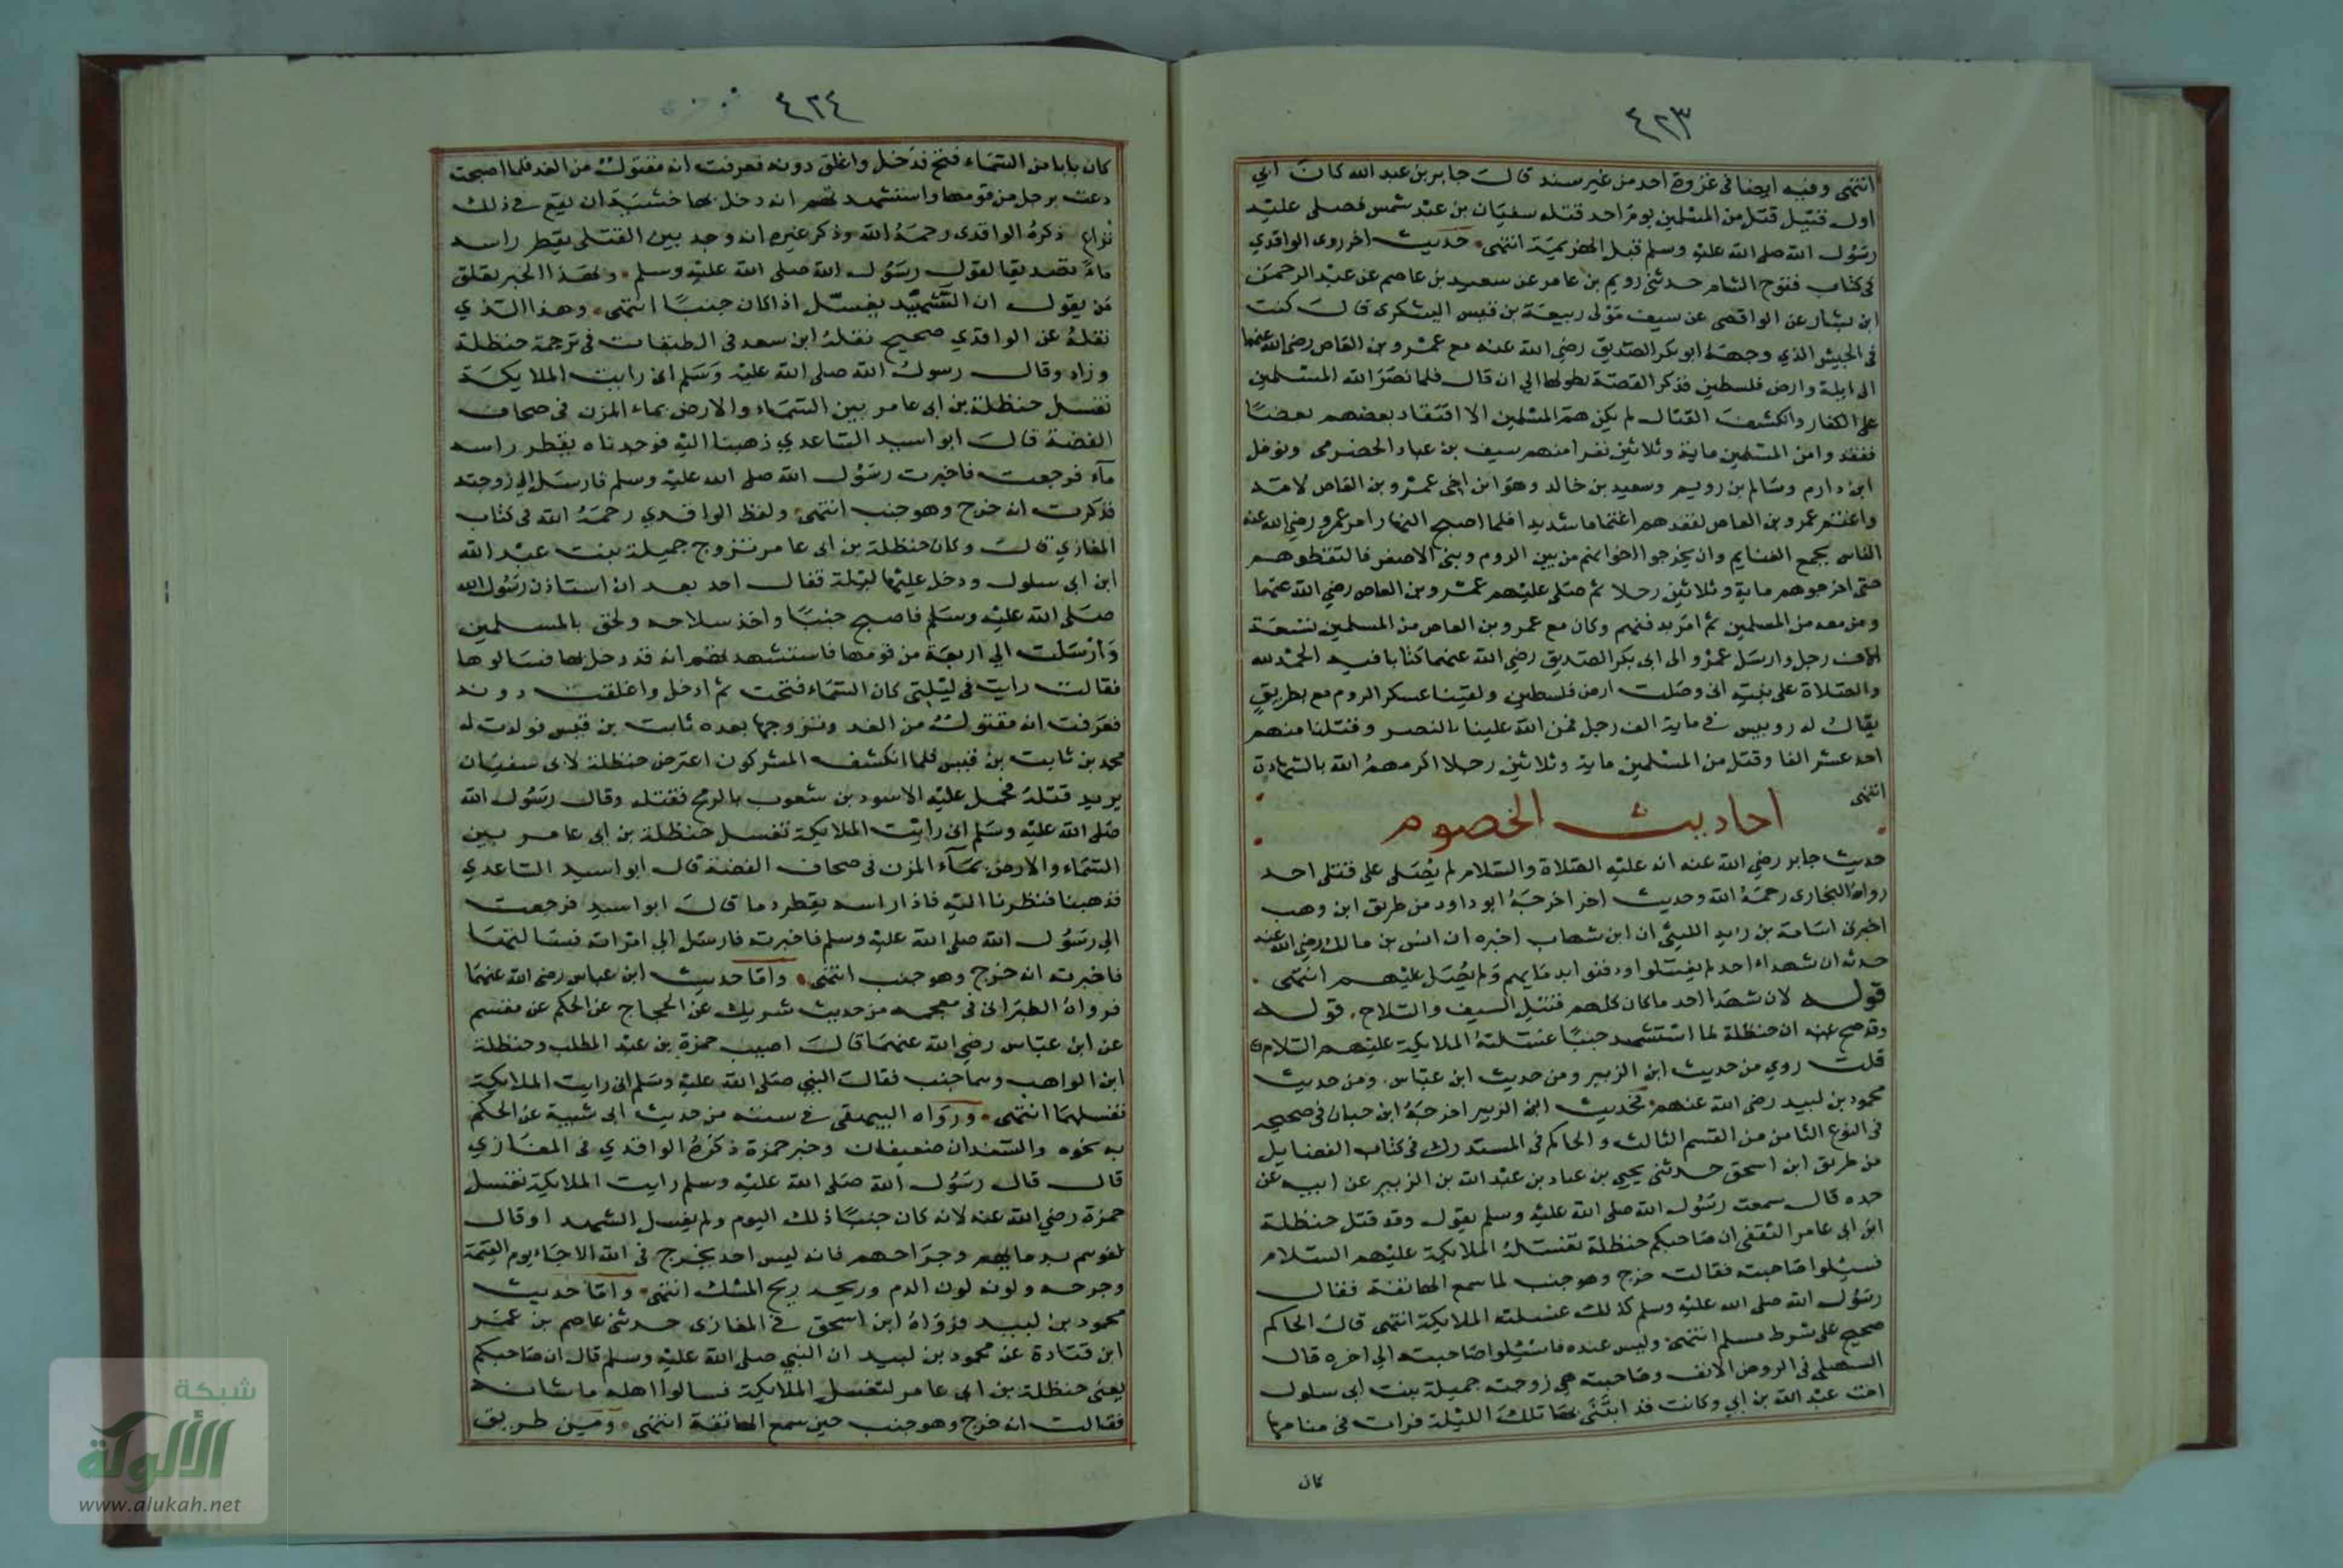 ٤٢٣
انتهى وفيه ايضا فى غزوة احد من غير سند قال جابر بن عبد الله كان ابي
اول قتيل قتل من المسلمين يوم احد قتله سفيان بن عبد شمس فصلى عليه
رسول الله صلى الله عليه وسلم قبل الهزيمة انتهى حديث اخر روى الواقدي
فى كتاب فتوح الشام حدثنى رويم بن عامر عن سعيد بن عاصم عن عبد الرحمن
ابن بشار عن الواقصى عن سيف مولى ربيعة بن قيس اليشكرى قال كنت
فى الجيش الذي وجهه ابو بكر الصديق رضي الله عنه مع عمرو بن العاص رضي الله عنهما
الى ايلة وارض فلسطين فذكر القصة بطولها الي ان قال فلما نصر الله المسلمين
على الكفار وانكشف القتال لم يكن هم المسلمين الا افتقاد بعضهم بعضا
ففقدوا من المسلمين ماية وثلاثين نفرا منهم سيف بن عباد الحضرمى ونوفل
ابن دارم وسالم بن رويم وسعيد بن خالد وهو ابن اخى عمرو بن العاص لامه
واغتم عمرو بن العاص لفقدهم اغتماما شديدا فلما اصبح النهار امر عمرو رضي الله عنه
الناس بجمع الغنايم وان يخرجوا اخوانهم من بين الروم وبنى الاصفر فالتقطوهم
حتى اخرجوهم ماية وثلاثين رجلا ثم صلى عليهم عمرو بن العاص رضي الله عنهما
ومن معه من المسلمين ثم امر بدفنهم وكان مع عمرو بن العاص من المسلمين تسعة
الاف رجل وارسل عمرو الى ابى بكر الصديق رضي الله عنهما كتابا فيه الحمد لله
والصلاة على نبيه انى وصلت ارض فلسطين ولقينا عسكر الروم مع بطريق
يقال له روبيس فى ماية الف رجل فمن الله علينا بالنصر وقتلنا منهم
احد عشر الفا وقتل من المسلمين ماية وثلاثين رجلا اكرمهم الله بالشهادة
انتهى
احاديث الخصوم
حديث جابر رضي الله عنه انه عليه الصلاة والسلام لم يصلى على قتلى احد
رواه البخارى رحمه الله وحديث اخر اخرجه ابو داود من طريق ابن وهب
اخبرنى اسامة بن زيد الليثى ان ابن شهاب اخبره ان انس بن مالك رضي الله عنه
حدثه ان شهداء احد لم يغسلوا ودفنوا بدمايهم ولم يصل عليهم انتهى
قوله لان شهدا احد ما كان كلهم قتيل السيف والسلاح قوله
وقد صح عنه ان حنظلة لما استشهد جنبا غسلته الملايكة عليهم السلام
قلت روي من حديث ابن الزبير ومن حديث ابن عباس ومن حديث
محمود بن لبيد رضي الله عنهم فحديث ابن الزبير اخرجه ابن حبان فى صحيحه
فى النوع الثامن من القسم الثالث والحاكم فى المستدرك فى كتاب الفضايل
من طريق ابن اسحق حدثنى يحيى بن عباد بن عبد الله بن الزبير عن ابيه عن
جده قال سمعت رسول الله صلى الله عليه وسلم يقول وقد قتل حنظلة
ابن ابى عامر الثقفى ان صاحبكم حنظلة تغسله الملايكة عليهم السلام
فسيلوا صاحبته فقالت خرج وهو جنب لما سمع الهاتفة فقال
رسول الله صلى الله عليه وسلم كذلك غسلته الملايكة انتهى قال الحاكم
صحيح على شرط مسلم انتهى وليس عنده فاسئلوا صاحبته الي اخره قال
السهيلى فى الروض الانف وصاحبته هي زوجته جميلة بنت ابى سلول
اخت عبد الله بن ابي وكانت قد ابتنى بها تلك الليلة فرات فى منامها
كان
٤٢٤
كان بابا من السماء فتح فدخل واغلق دونه فعرفت انه مقتول من الغد فلما اصبحت
دعت برجل من قومها واستشهدتهم انه دخل بها خشية ان يقع فى ذلك
نزاع ذكره الواقدى رحمه الله وذكر غيره انه وجد بين القتلى يقطر راسه
ماء تصديقا لقول رسول الله صلى الله عليه وسلم ولهذا الخبر تعلق
من يقول ان الشهيد يغسل اذا كان جنبا انتهى وهذا الذي
نقله عن الواقدي صحيح نقله ابن سعد فى الطبقات فى ترجمة حنظلة
وزاد وقال رسول الله صلى الله عليه وسلم انى رايت الملايكة
تغسل حنظلة بن ابى عامر بين السماء والارض بماء المزن فى صحاف
الفضة قال ابو اسيد الساعدي ذهبنا اليه فوجدناه يقطر راسه
ماء فرجعت فاخبرت رسول الله صلى الله عليه وسلم فارسل الي زوجته
فذكرت انه خرج وهو جنب انتهى ولفظ الواقدي رحمه الله فى كتاب
المغازي قال وكان حنظلة بن ابى عامر تزوج جميلة بنت عبد الله
ابن ابي سلول ودخل عليها ليلة قتال احد بعد ان استاذن رسول الله
صلى الله عليه وسلم فاصبح جنبا واخذ سلاحه ولحق بالمسلمين
وارسلت الي اربعة من قومها فاستشهدتهم انه قد دخل بها فسالوها
فقالت رايت فى ليلتى كان السماء فتحت ثم ادخل واغلقت دونه
فعرفت انه مقتول من الغد وتزوجها بعده ثابت بن قيس فولدت له
محمد بن ثابت بن قيس فلما انكشف المشركون اعترض حنظلة لابى سفيان
يريد قتله فحمل عليه الاسود بن شعوب بالرمح فقتله وقال رسول الله
صلى الله عليه وسلم انى رايت الملايكة تغسل حنظلة بن ابى عامر بين
السماء والارض بماء المزن فى صحاف الفضة قال ابو اسيد الساعدي
فذهبنا فنظرنا اليه فاذا راسه يقطر دما قال ابو اسيد فرجعت
الي رسول الله صلى الله عليه وسلم فاخبرته فارسل الي امراته فسالتها
فاخبرته انه خرج وهو جنب انتهى واما حديث ابن عباس رضى الله عنهما
فرواه الطبرانى فى معجمه من حديث شريك عن الحجاج عن الحكم عن مقسم
عن ابن عباس رضي الله عنهما قال اصيب حمزة بن عبد المطلب وحنظلة
ابن الراهب وهما جنب فقال النبي صلى الله عليه وسلم انى رايت الملايكة
تغسلهما انتهى ورواه البيهقى فى سننه من حديث ابى شيبة عن الحكم
به نحوه والسندان ضعيفان وخبر حمزة ذكره الواقدي فى المغازي
قال قال رسول الله صلى الله عليه وسلم رايت الملايكة تغسل
حمزة رضي الله عنه لانه كان جنبا ذلك اليوم ولم يغسل الشهدا وقال
لفوهم بدمايهم وجراحهم فانه ليس احد يخرج فى الله الا جاء يوم القيمة
وجرحه ولونه لون الدم وريحه ريح المسك انتهى واما حديث
محمود بن لبيد فرواه ابن اسحق فى المغازى حدثنى عاصم بن عمر
ابن قتادة عن محمود بن لبيد ان النبي صلى الله عليه وسلم قال ان صاحبكم
يعنى حنظلة بن ابى عامر لتغسل الملايكة فسالوا اهله ما شانه
فقالت انه خرج وهو جنب حين سمع الهاتفة انتهى ومن طريق
شبكة
الألوكة
www.alukah.net